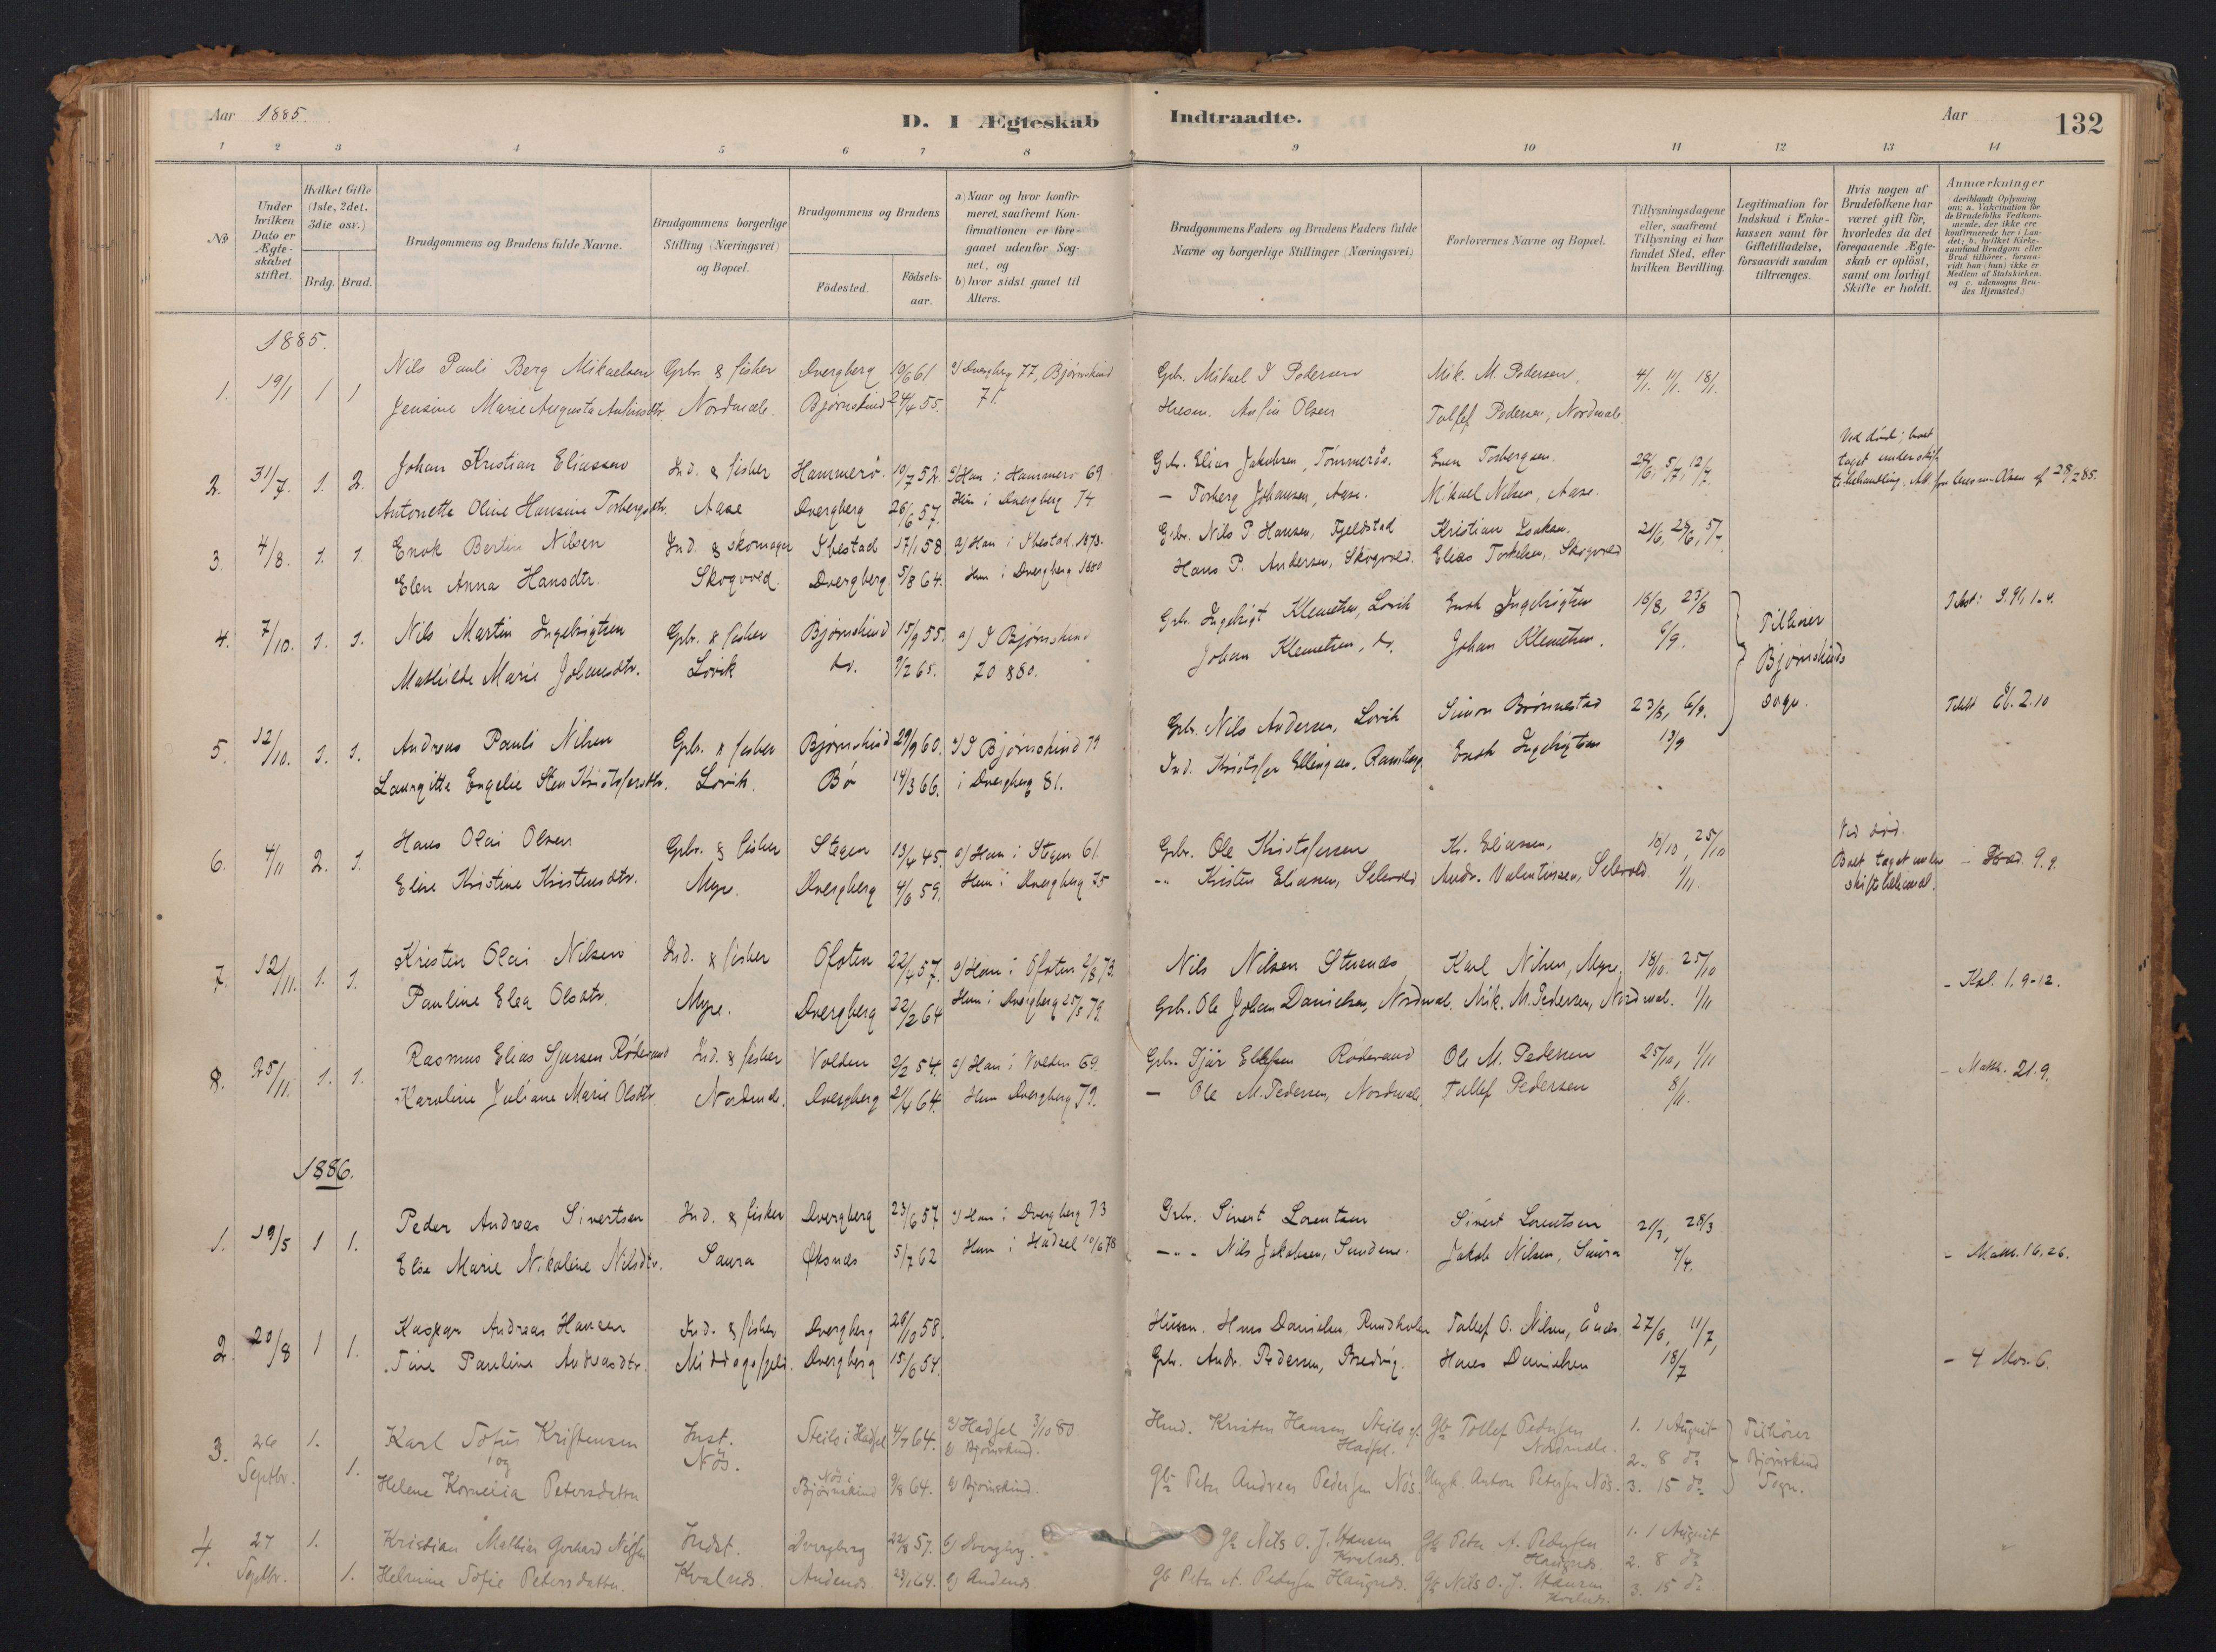 Aar 1885.
D. I Ægteskab Indtraadte.
Aar
132
1 2 3 4 5 6 7 8 9 10 11 12 13 14
No
Under hvilken Dato er Ægteskabet stiftet.
Hvilket Gifte (1ste, 2det, 3die osv.)
Brdg. Brud.
Brudgommens og Brudens fulde Navne.
Brudgommens borgerlige Stilling (Næringsvei) og Bopæl.
Brudgommens og Brudens
Födested.
Födselsaar.
a) Naar og hvor konfirmeret, saafremt Konfirmationen er foregaaet udenfor Sognet, og
b) hvor sidst gaaet til Alters.
Brudgommens Faders og Brudens Faders fulde Navne og borgerlige Stillinger (Næringsvei)
Forlovernes Navne og Bopæl.
Tillysningsdagene eller, saafremt Tillysning ei har fundet Sted, efter hvilken Bevilling.
Legitimation for Indskud i Enkekassen samt for Giftetilladelse, forsaavidt saadan tiltrænges.
Hvis nogen af Brudefolkene har været gift för, hvorledes da det foregaaende Ægteskab er oplöst, samt om lovligt Skifte er holdt.
Anmærkninger (deriblandt Oplysning om: a. Vakcination for de Brudefolks Vedkommende, der ikke ere konfirmerede her i Landet; b. hvilket Kirkesamfund Brudgom eller Brud tilhører, forsaavidt han (hun) ikke er Medlem af Statskirken, og c. udensogns Brudes Hjemsted.)
1885.
1. 19/1 1 1 Nils Pauli Berg Mikaelsen Gbr. & fisker Dvergberg 10/6 61 a) Dvergberg 77, Bjørnskind Gbr. Mikael I Pedersen Mik. M. Pedersen 4/1. 11/1. 18/1.
Jensine Marie Augusta Antinsdtr. Nordmæle. Bjørnskind 24/4 55. 71. Husm. Antin Olsen Tollef Pedersen, Nordmæle
2. 31/7. 1. 2. Johan Kristian Eliassen Ind. & fisker Hammerø. 10/7 52. a) Han i Hammerø 69 Gbr. Elias Jakobsen, Tømmerås. Even Torbergsen. 28/6, 5/7, 12/7. Ved død; boet taget under skiftebehandling.
Antonette Oline Hansine Torbergsdtr. Aase Dvergberg 26/6 57. Hun i Dvergberg 74 — Torberg Johansen, Aase. Mikael Nilsen, Aase.
3. 4/8. 1. 1. Enok Bertin Nilsen Ind. & skomager Ibestad 17/1 58. a) Han i Ibestad 1873. Gbr. Nils P. Hansen, Fjeldstad Kristian Isaksen. 21/6, 28/6, 5/7.
Elen Anna Hansdtr. Skogvold. Dvergberg. 5/8 64. Hun i Dvergberg 1880 Hans P. Andersen, Skogvold. Elias Torkelsen, Skogvold
4. 7/10. 1. 1. Nils Martin Ingebrigtsen Gbr. & fisker Bjørnskind 15/9 55. a) I Bjørnskind Gbr. Ingebrigt Klemetsen, Lovik Enok Ingebrigtsen 16/8, 23/8 Tilhører Tekst: S. 91, 1.4.
Mathilde Marie Johansdtr. Lovik do. 9/2 65. 70 & 80. Johan Klemetsen, do. Johan Klemetsen. 6/9. Bjørnskinds sogn.
5. 12/10. 1. 1. Andreas Pauli Nilsen Gbr. & fisker Bjørnskind 29/9 60. a) I Bjørnskind 79 Gbr. Nils Andersen, Lovik Simon Brønnestad 23/8, 6/9. Tekst 2.10
Laurgitte Engelie Sten Kristofersdtr. Lovik. Bø 14/3 66. i Dvergberg 81. Ind. Kristofer Ellingsen, Ramberg. Enok Ingebrigtsen 13/9
6. 4/11 2. 1. Hans Olai Olsen Gbr. & fisker Stegen 13/4 45. a) Han i Stegen 61. Gbr. Ole Kristofersen Kr. Eliassen, 18/10, 25/10 Ved død. Boet taget under skiftebehandl. — Præd. 9.9.
Elise Kristine Kristensdtr. Myre. Dvergberg 4/6 59. Hun i Dvergberg 75 Kristen Eliassen, Selvold. Andr. Valentinsen, Selvold. 1/11.
7. 12/11. 1. 1. Kristen Olai Nilsen Ind. & fisker Ofoten 22/4 57. a) Han i Ofoten 2/8 73. Nils Nilsen Strænds Karl Nilsen, Myre. 18/10. 25/10 - Kol. 1.9-12.
Pauline Elea Olsdtr. Myre. Dvergberg 22/2 64 Hun i Dvergberg 25/5 79. Gbr. Ole Johan Danielsen, Nordmæle. Mik. M. Pedersen, Nordmæle. 1/11
8. 25/11. 1. 1. Rasmus Elias Sjursen Rødesand Ind. & fisker Volden 2/2 54. a) Han i Volden 69. Gbr. Sjur Ellefsen Rødesand Ole M. Pedersen 25/10, 1/11 - Matth. 21.9.
Karoline Juliane Marie Olsdtr. Nordmæle. Dvergberg 21/4 64. Hun Dvergberg 79. — Ole M. Pedersen, Nordmæle. Tollef Pedersen 8/11.
1886.
1. 19/5 1 1. Peder Andreas Sivertsen Ind. & fisker Dvergberg 23/6 57 a) Han i Dvergberg 73 Gbr. Sivert Lorentsen Sivert Lorentsen 21/3, 28/3
Else Marie Nikoline Nilsdtr. Saura Øksnes 5/7 62 Hun i Hadsel 10/6 78 Nils Jakobsen, Sundene. Jakob Nilsen, Saura 4/4. - Matth. 16.26.
2. 20/8 1 1. Kaspar Andreas Hansen Ind. & fisker Dvergberg 28/10 58. Husm. Hans Danielsen, Rundholm Tollef O. Nilsen, Åndes. 27/6, 11/7,
Tine Pauline Andreasdtr. Middagsfjeld. Dvergberg 15/6 54. Gbr. Andr. Pedersen, Bredvig. Hans Danielsen 18/7 - 4 Mos. 6.
3. 26 Septbr. 1. Karl Tofus Kristensen Inst. Steilo i Hadsel 4/7 64. a) Hadsel 3/10 80 b) Bjørnskind. Kristen Hansen Steilo Hadsel. Gbr Tollef Pedersen Nordmæle. 1. 1 August Tilhører
og Nös. 2. 8 do Bjørnskind
1. Helene Kornelia Petersdatter Nös i Bjørnskind 9/8 64. b) Bjørnskind. Gbr Peter Andreas Pedersen Nös. Ungk. Anton Petersen Nös. 3. 15 do Sogn.
4. 27 Septbr. 1. Kristian Mathias Gerhard Nilsen Indst. Dvergberg 22/8 57. b) Dvergberg. Gbr Nils O. J. Hansen Kvalnes. Gbr Peter A. Pedersen Haugnes. 1. 1 August
2. 8 do
1. Helmine Tofie Petersdatter. Kvalnes. Andenes 23/1 64. b) Andenes Gbr Peter A. Pedersen Haugnes. Gbr Nils O. J. Hansen Kvalnes. 3. 15 do